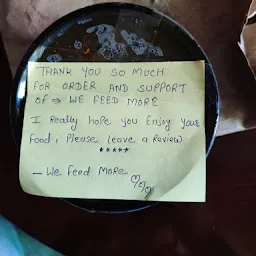 THANK YOU SO MUCH
FOR ORDER AND SUPPORT
OF → WE FEED MORE
I Really hope you Enjoy your
Food, Please leave a Review
*****
- We Feed More